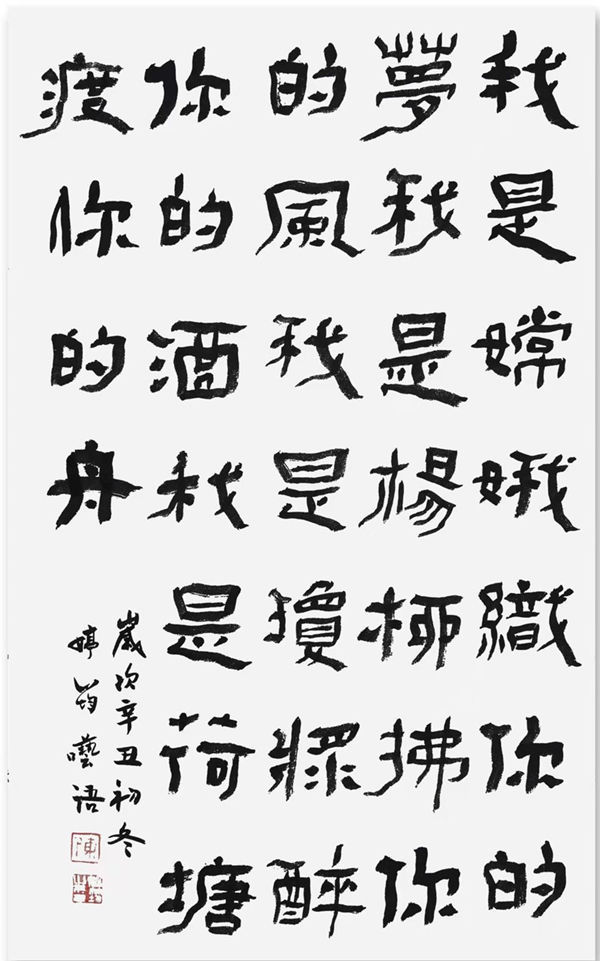 我是嫦娥織你的
夢我是楊柳拂你
的風我是瓊漿醉
你的酒我是荷塘
渡你的舟
歲次辛丑初冬
婷筠囈語
陳